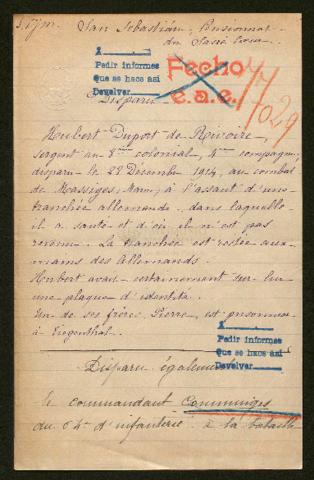 San Sebastián, Pensionnat
du Sacré Coeur
1
Pedir informes
Que se hace así
Devolver
Fecho
e.a.e.
7029
Disparu
Hubert Duport de Rivoire,
sergent au 8ème colonial, 4ème compagnie,
disparu le 28 Décembre 1914, au combat
de Massiges, Marne, à l'assaut d'une
tranchée allemande, dans laquelle
il a sauté et d'où il n'est pas
revenu. La tranchée est restée aux
mains des Allemands.
Hubert avait certainement sur lui
une plaque d'identité.
Un de ses frères, Pierre, est prisonnier
à
1
Pedir informes
Que se hace así
Devolver
Disparu également
le commandant Comminges
du 64e d'infanterie à la bataille